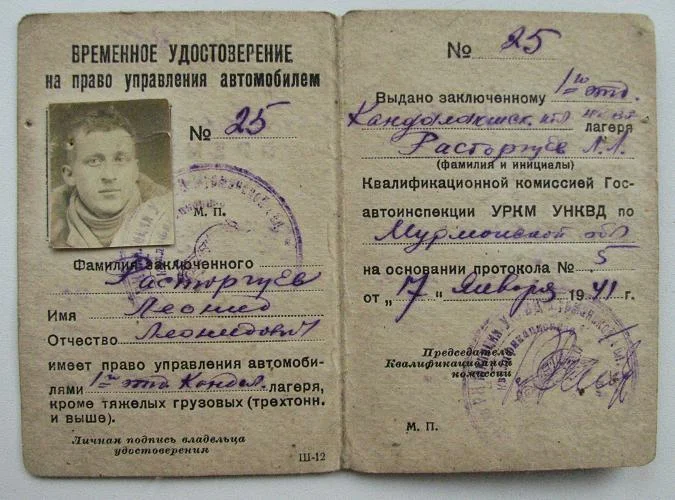 ВРЕМЕННОЕ УДОСТОВЕРЕНИЕ
на право управления автомобилем
№ 25
М. П.
Фамилия заключенного
Расторгуев
Имя Леонид
Отчество Леонидович
имеет право управления автомоби-
лями 1го отд. Кандал. лагеря,
кроме тяжелых грузовых (трехтонн.
и выше).
Личная подпись владельца
удостоверения
Ш-12
№ 25
Выдано заключенному 1го отд.
Кандалакшск. лагеря
Расторгуев Л.Л.
(фамилия и инициалы)
Квалификационной комиссией Гос-
автоинспекции УРКМ УНКВД по
Мурманской обл
на основании протокола № 5
от „7" Января 1941 г.
Председатель
Квалификационной
комиссии
М. П.